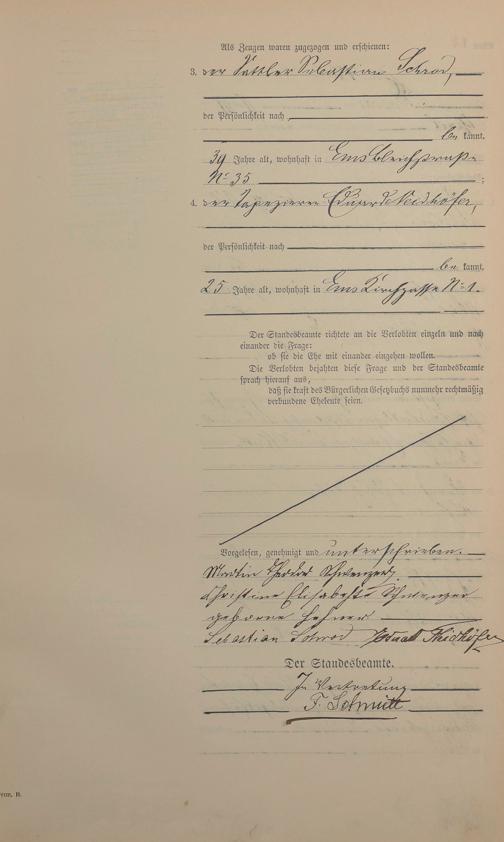 Als Zeugen waren zugezogen und erschienen:
3. der Sattler Sebastian Schrod,
der Persönlichkeit nach
be kannt,
39 Jahre alt, wohnhaft in Ems Bleichstraße
No 35 ;
4. der Tapezierer Eduard Neidhöfer,
der Persönlichkeit nach
be kannt,
25 Jahre alt, wohnhaft in Ems Kirchgasse No 1.
Der Standesbeamte richtete an die Verlobten einzeln und nach
einander die Frage:
ob sie die Ehe mit einander eingehen wollen.
Die Verlobten bejahten diese Frage und der Standesbeamte
sprach hierauf aus,
daß sie kraft des Bürgerlichen Gesetzbuchs nunmehr rechtmäßig
verbundene Eheleute seien.
Vorgelesen, genehmigt und unterschrieben.
Martin Theodor Schwenzer
Christine Elisabetha Schwenzer
geborne Lehner
Sebastian Schrod Eduard Neidhöfer
Der Standesbeamte.
In Vertretung
F. Schmitt
B.